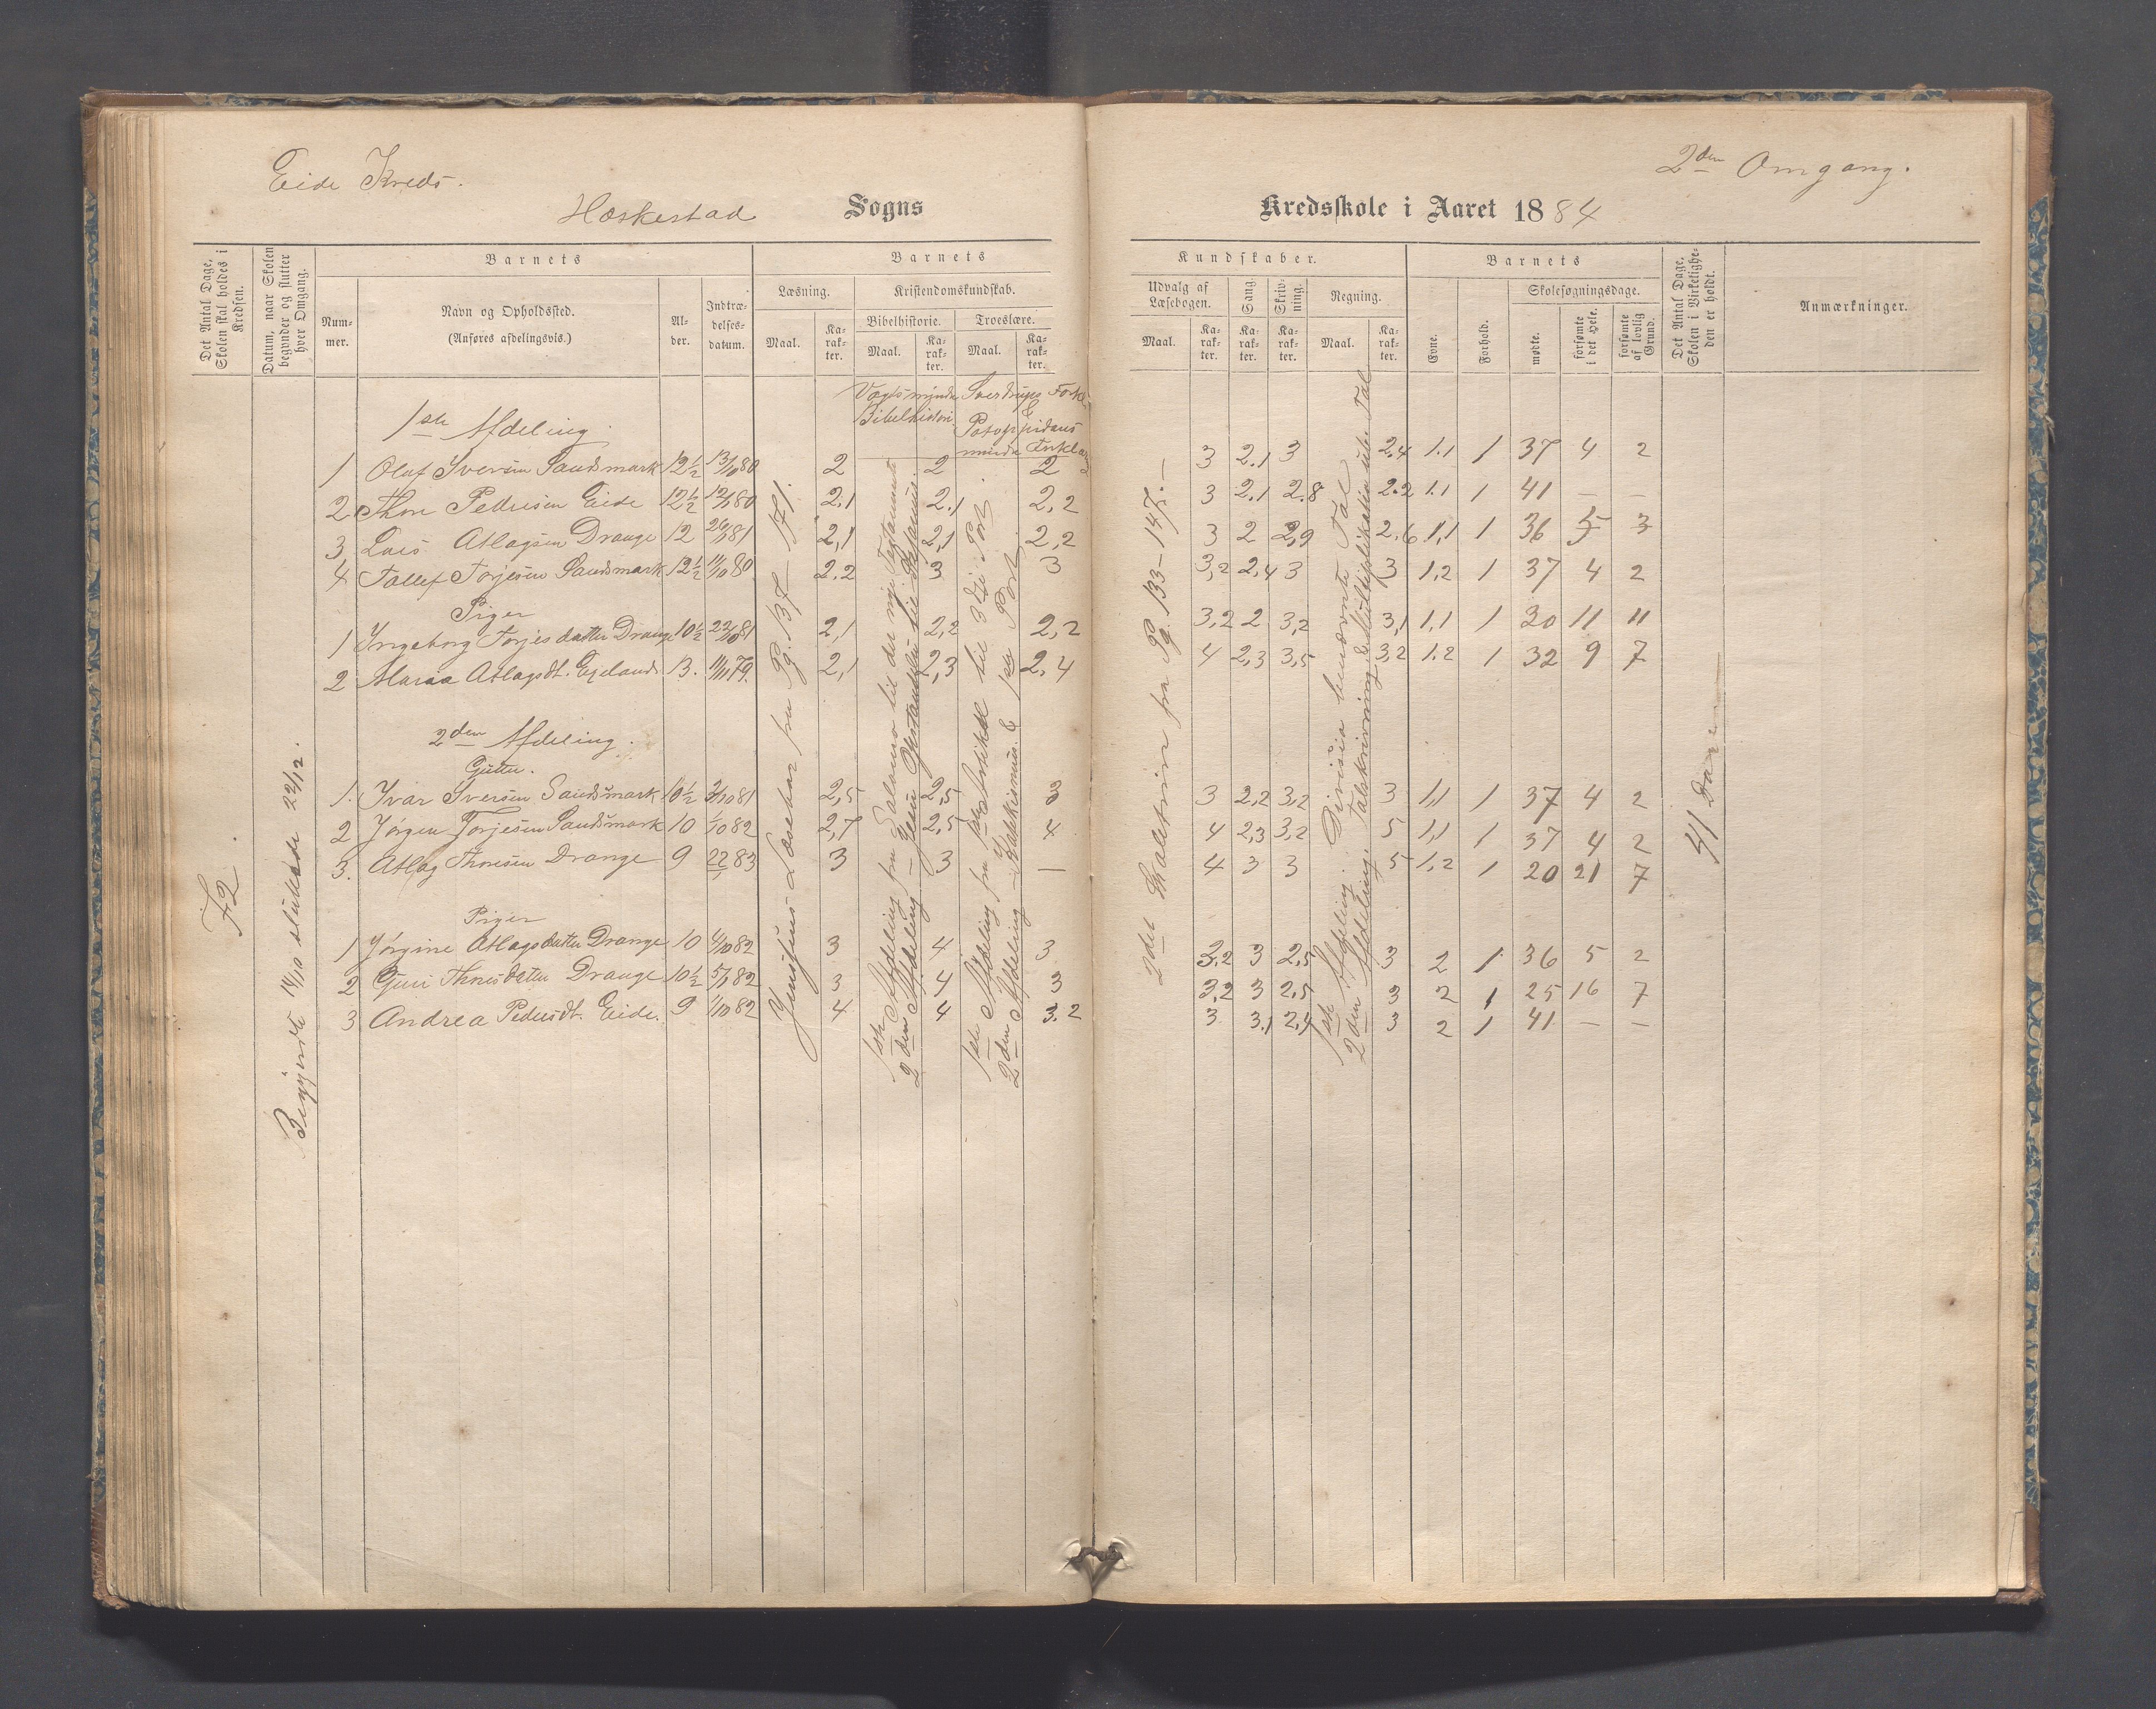 Eide Kreds.
2den Omgang.
Heskestad Sogns Kredsskole i Aaret 1884
Det Antal Dage, Skolen skal holdes i Kredsen.
Datum, naar Skolen begynder og slutter hver Omgang.
Barnets
Nummer.
Navn og Opholdssted.
(Anføres afdelingsvis.)
Alder.
Indtrædelsesdatum.
Barnets
Læsning.
Kristendomskundskab.
Bibelhistorie.
Troeslære.
Maal.
Karakter.
Maal.
Karakter.
Maal.
Karakter.
Kundskaber.
Udvalg af Læsebogen.
Sang.
Skrivning.
Regning.
Maal.
Karakter.
Karakter.
Karakter.
Maal.
Karakter.
Barnets
Evne.
Forhold.
Skolesøgningsdage.
mødte.
forsømte i det Hele.
forsømte af lovlig Grund.
Det Antal Dage, Skolen i Virkeligheden er holdt.
Anmærkninger.
72.
Begyndte 14/10 sluttede 22/12.
Vogts mindre Bibelhistori
Sverdrups Forkl. & Potoppidans mindre Forklar
1ste Afdeling.
1 Olaf Iversen Sandsmark 12½ 13/10 80 2 2 2 3 2.1 3 2.4 1.1 1 37 4 2
2 Thore Pedersen Eide 12½ 2.1 2.1 2,2 3 2.1 2.8 2.2 1.1 1 41 — —
3 Lars Atlagsen Drange 12 2,1 2,1 2,2 3 2 2,9 2,6 1,1 1 36 5 3
4 Tollef Torjesen Sandsmark 12½ 11/10 80 2.2 3 3 3,2 2,4 3 3 1,2 1 37 4 2
Piger
1 Ingeborg Torjesdatter Drange 10½ 2,1 2,2 2,2 3,2 2 3,2 3,1 1,1 1 30 11 11
2 Maria Atlagsdt. Ejeland 13. 2,1 2,3 2,4 4 2,3 3,5 3,2 1.2 1 32 9 7
2den Afdeling.
Gutter.
1. Ivar Iversen Sandsmark 10½ 3/10 81 2,5 2,5 3 3 2,2 3,2 3 1,1 1 37 4 2
2 Jørgen Torjesen Sandsmark 10 1/10 82 2,7 2,5 4 4 2,3 3,2 5 1,1 1 37 4 2
3. Atlag Thoresen Drange 9 3 3 — 4 3 3 5 1,2 1 20 21 7
Piger
1 Jørgine Atlagsdatter Drange 10 4/10 82 3 4 3 3.2 3 2,5 3 2 1 36 5 2
2 Guri Thoresdatter Drange 10½ 3 4 3 3,2 3 2,5 3 2 1 25 16 7
3 Andrea Pedersdt. Eide. 9 1/10 82 4 4 3.2 3 3.1 2,4 3 2 1 41 — —
Jensens Læsebog fra Pg. 137 – 171.
1ste Afdeling fra Salomo til det nye Testamente
2den Afdeling – Jesu Opstandelse til Stefanus.
1ste Afdeling fra 1ste Artikel til 3die Part.
2den Afdeling – Katekismus. & 1ste Part
2det Skoletrin fra Pg. 133 – 147. —
1ste Afdeling. Division benævnte Tal
2den Afdeling. Talskrivning & Multiplikation ube. Tal
41 Dage